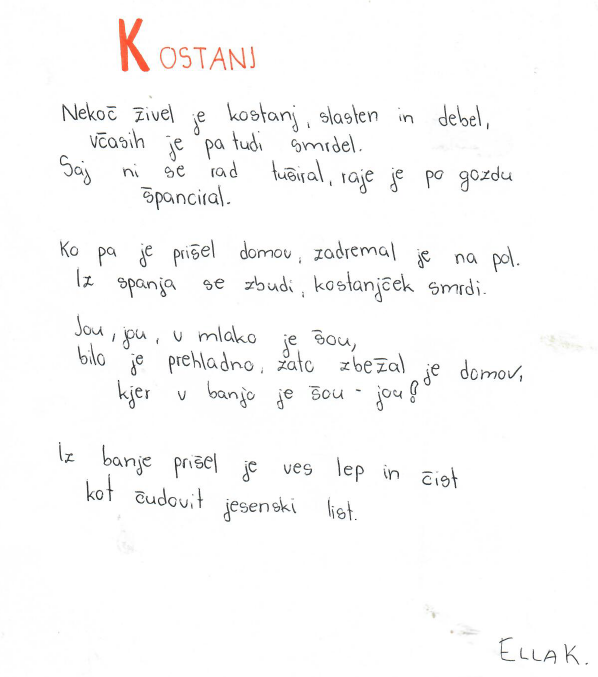 KOSTANJ
Nekoč živel je kostanj, slasten in debel,
včasih je pa tudi smrdel.
Saj ni se rad tuširal, raje je po gozdu
španciral.
Ko pa je prišel domov, zadremal je na pol.
Iz spanja se zbudi, kostanjček smrdi.
Jou, jou, v mlako je šou,
bilo je prehladno, zato zbežal je domov,
kjer v banjo je šou - jou!
Iz banje prišel je ves lep in čist
kot čudovit jesenski list.
ELLA K.